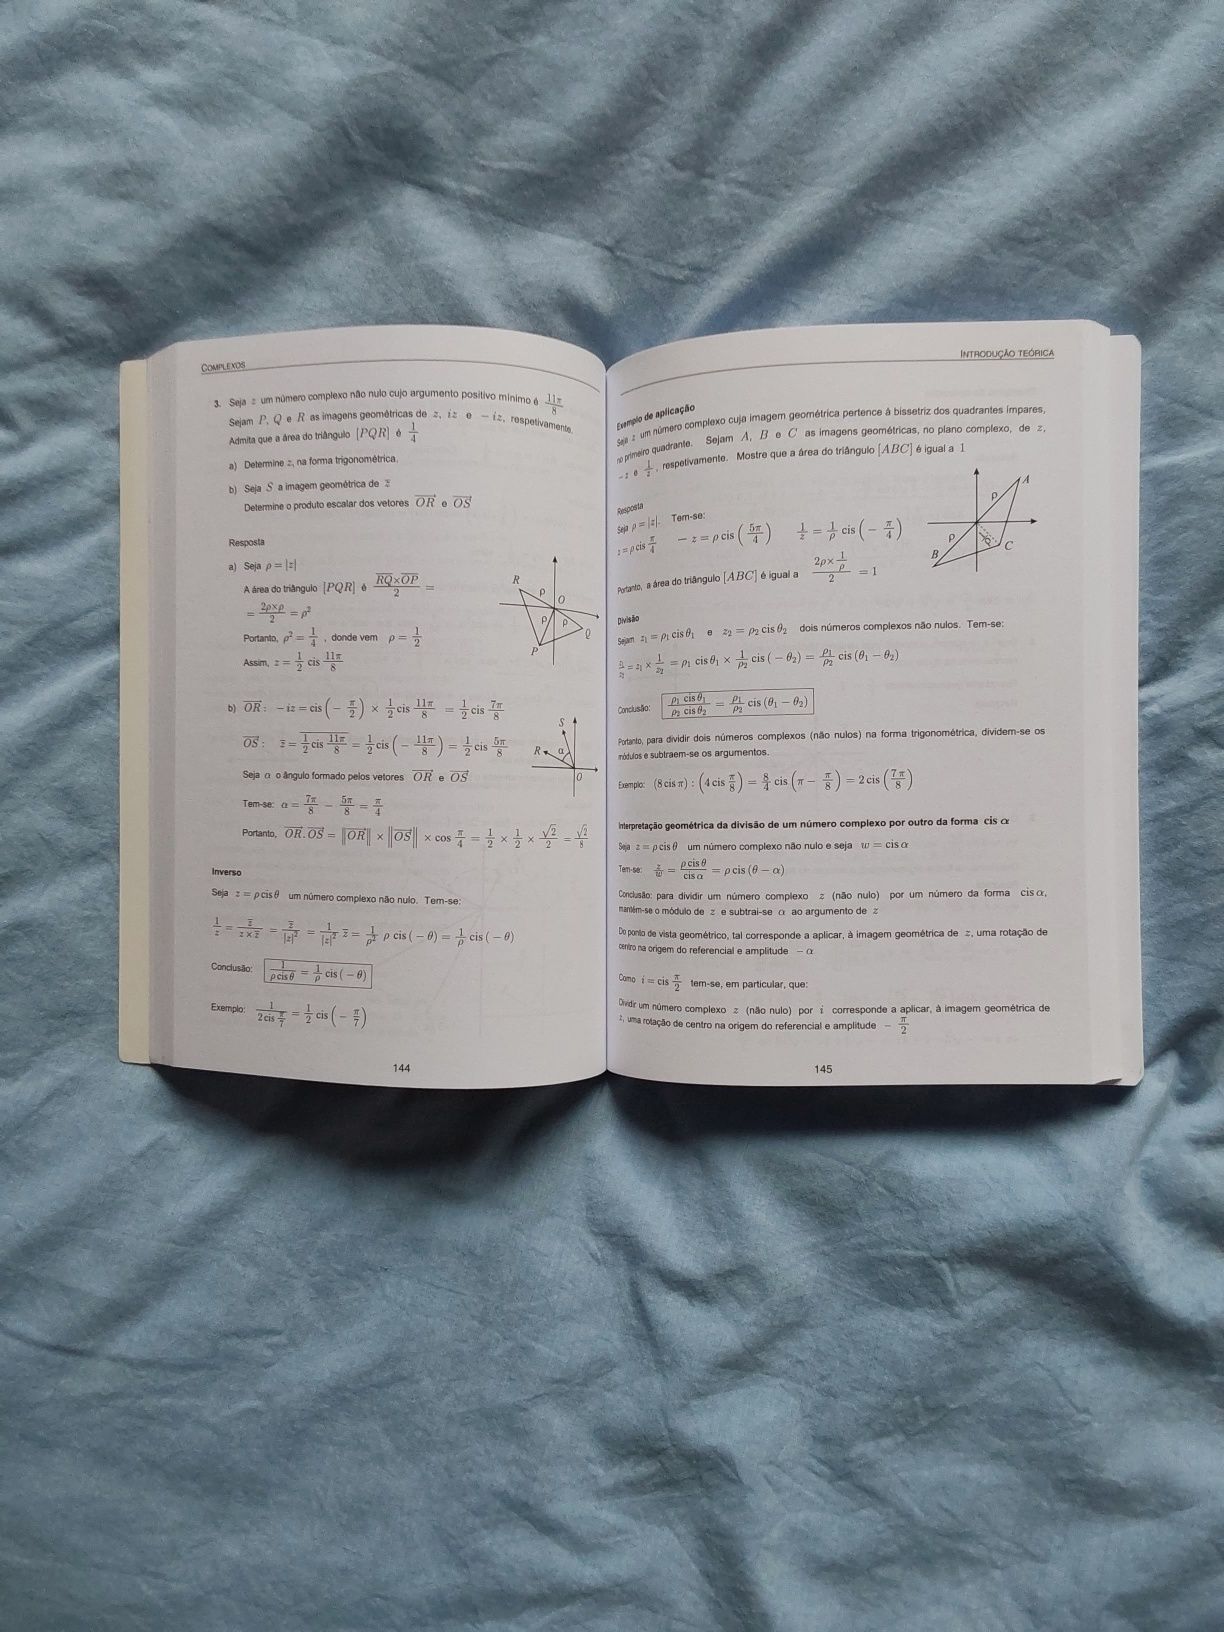 COMPLEXOS
3. Seja z um número complexo não nulo cujo argumento positivo mínimo é 11π/8
Sejam P, Q e R as imagens geométricas de z, iz e −iz, respetivamente.
Admita que a área do triângulo [PQR] é 1/4
a) Determine z, na forma trigonométrica.
b) Seja S a imagem geométrica de z̅
Determine o produto escalar dos vetores OR e OS
Resposta
a) Seja ρ = |z|
A área do triângulo [PQR] é (RQ × OP)/2 =
= (2ρ×ρ)/2 = ρ²
Portanto, ρ² = 1/4, donde vem ρ = 1/2
Assim, z = 1/2 cis 11π/8
R ρ O
ρ ρ
P Q
b) OR: −iz = cis(−π/2) × 1/2 cis 11π/8 = 1/2 cis 7π/8
OS: z̅ = 1/2 cis 11π/8 = 1/2 cis(−11π/8) = 1/2 cis 5π/8
Seja α o ângulo formado pelos vetores OR e OS
Tem-se: α = 7π/8 − 5π/8 = π/4
Portanto, OR.OS = ‖OR‖ × ‖OS‖ × cos π/4 = 1/2 × 1/2 × √2/2 = √2/8
S
R α
O
Inverso
Seja z = ρ cis θ um número complexo não nulo. Tem-se:
1/z = z̅/(z × z̅) = z̅/|z|² = 1/|z|² z̅ = 1/ρ² ρ cis(−θ) = 1/ρ cis(−θ)
Conclusão: 1/(ρ cis θ) = 1/ρ cis(−θ)
Exemplo: 1/(2 cis π/7) = 1/2 cis(−π/7)
144
INTRODUÇÃO TEÓRICA
Exemplo de aplicação
Seja z um número complexo cuja imagem geométrica pertence à bissetriz dos quadrantes ímpares,
no primeiro quadrante. Sejam A, B e C as imagens geométricas, no plano complexo, de z,
−z e 1/z, respetivamente. Mostre que a área do triângulo [ABC] é igual a 1
Resposta
Seja ρ = |z|. Tem-se:
z = ρ cis π/4 −z = ρ cis(5π/4) 1/z = 1/ρ cis(−π/4)
Portanto, a área do triângulo [ABC] é igual a (2ρ × 1/ρ)/2 = 1
A
ρ
ρ
B C
Divisão
Sejam z₁ = ρ₁ cis θ₁ e z₂ = ρ₂ cis θ₂ dois números complexos não nulos. Tem-se:
z₁/z₂ = z₁ × 1/z₂ = ρ₁ cis θ₁ × 1/ρ₂ cis(−θ₂) = ρ₁/ρ₂ cis(θ₁ − θ₂)
Conclusão: (ρ₁ cis θ₁)/(ρ₂ cis θ₂) = ρ₁/ρ₂ cis(θ₁ − θ₂)
Portanto, para dividir dois números complexos (não nulos) na forma trigonométrica, dividem-se os
módulos e subtraem-se os argumentos.
Exemplo: (8 cis π) : (4 cis π/8) = 8/4 cis(π − π/8) = 2 cis(7π/8)
Interpretação geométrica da divisão de um número complexo por outro da forma cis α
Seja z = ρ cis θ um número complexo não nulo e seja w = cis α
Tem-se: z/w = (ρ cis θ)/(cis α) = ρ cis(θ − α)
Conclusão: para dividir um número complexo z (não nulo) por um número da forma cis α,
mantém-se o módulo de z e subtrai-se α ao argumento de z
Do ponto de vista geométrico, tal corresponde a aplicar, à imagem geométrica de z, uma rotação de
centro na origem do referencial e amplitude −α
Como i = cis π/2 tem-se, em particular, que:
Dividir um número complexo z (não nulo) por i corresponde a aplicar, à imagem geométrica de
z, uma rotação de centro na origem do referencial e amplitude −π/2
145